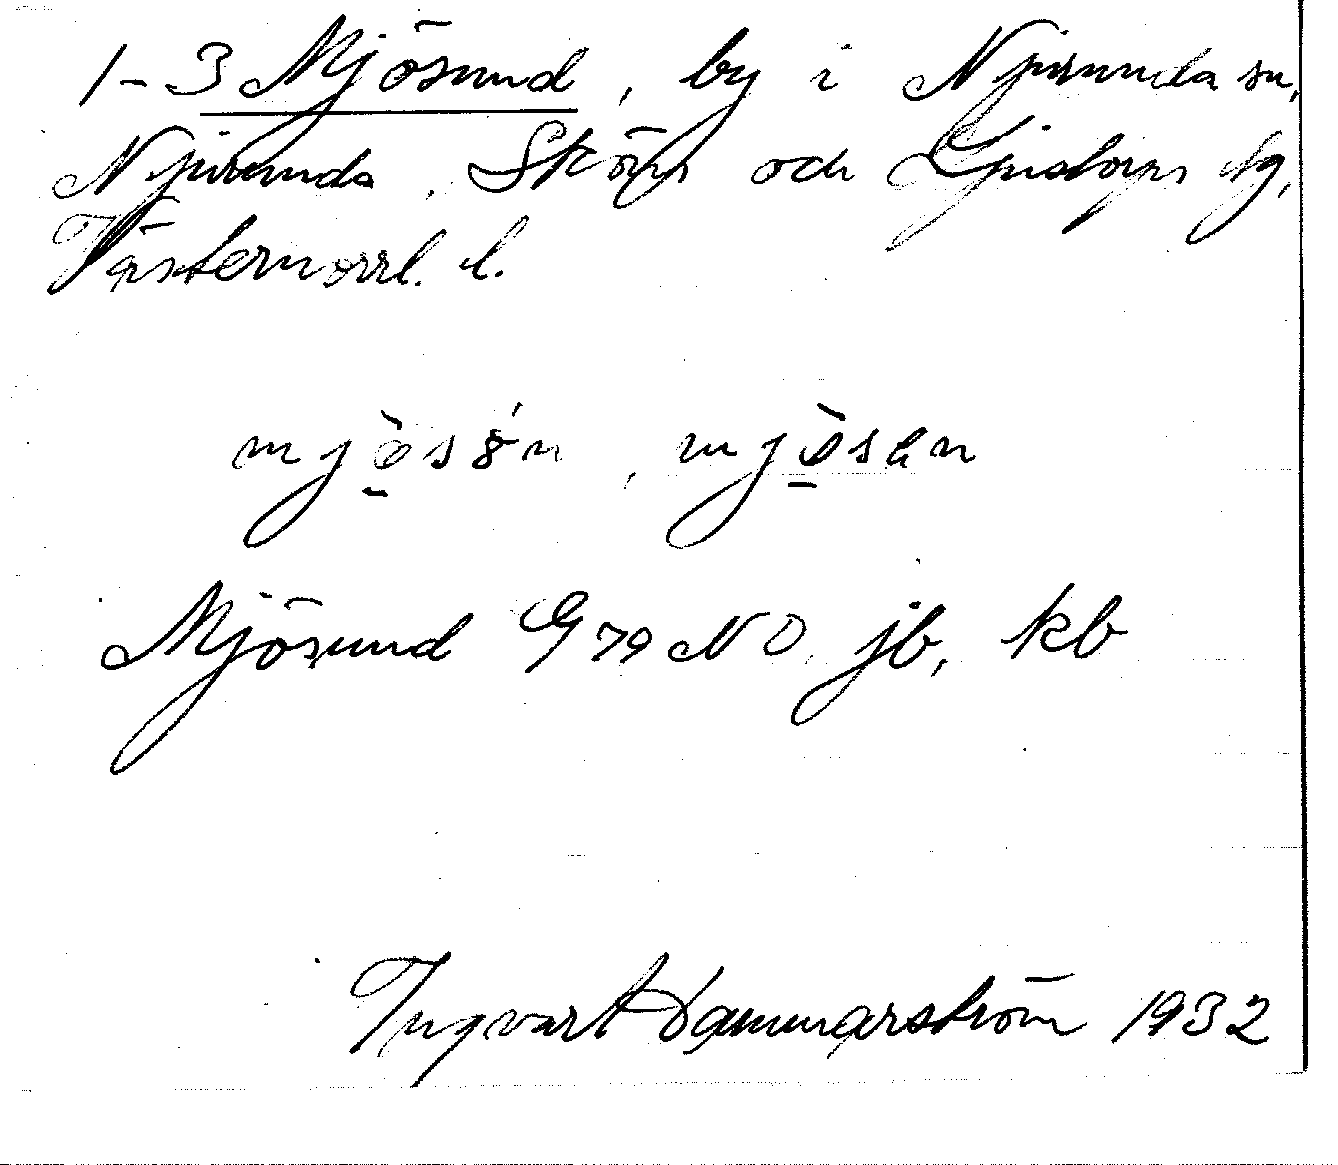 1-3 Mjösund, by i Njurunda sn,
Njurunda, Sköns och Ljustorps tg,
Västernorrl. l.
mjò̱sǿn, mjò̱sən
Mjösund G 79 NO jb, kb
Ingvart Hammarström 1932